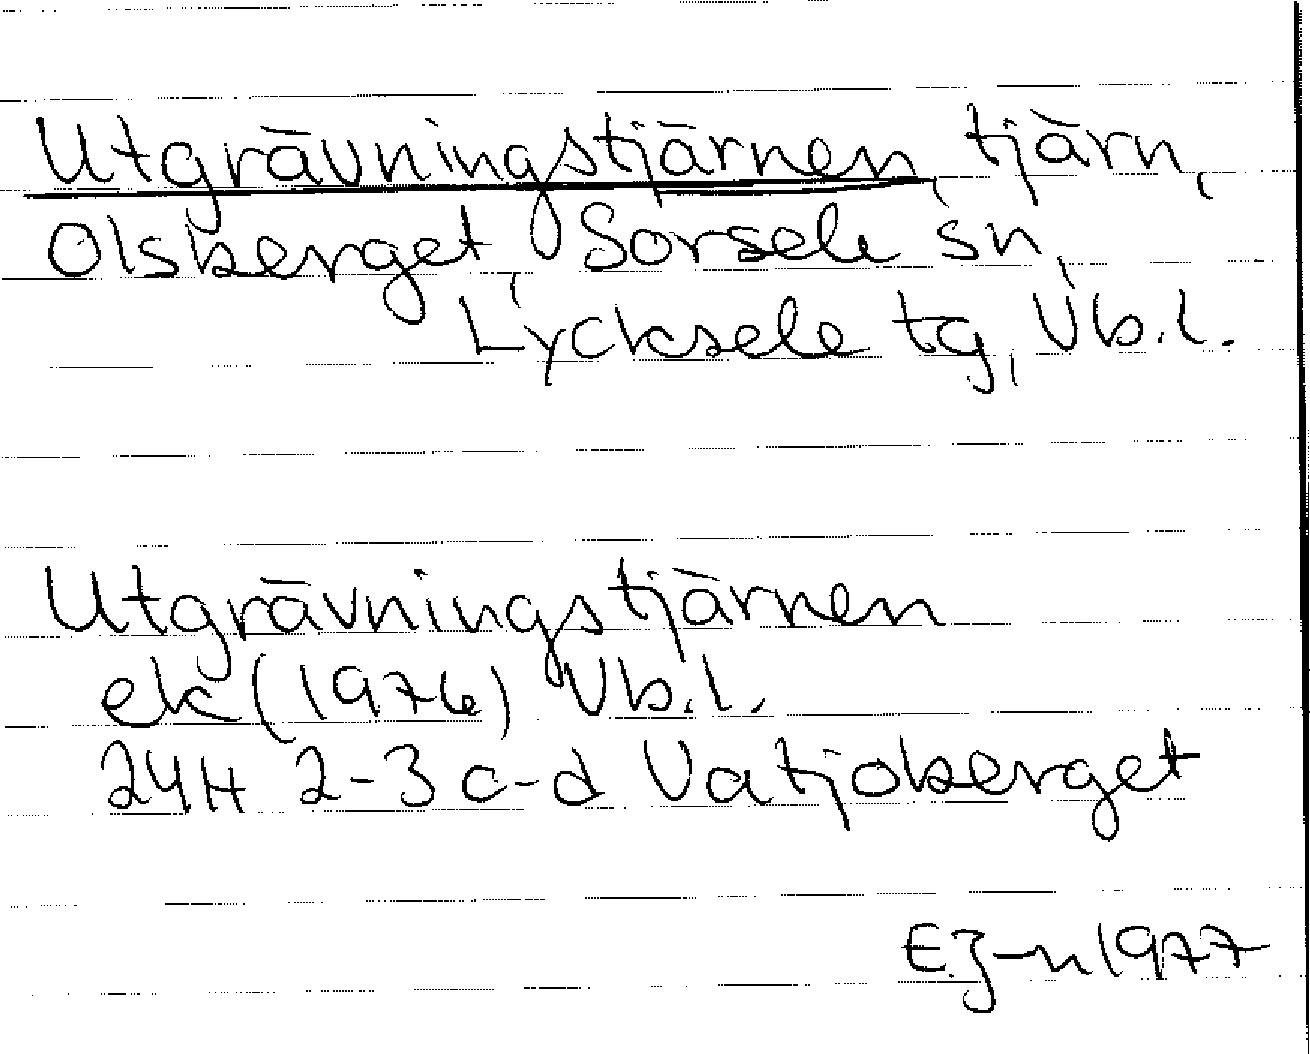 Utgrävningstjärnen, tjärn,
Olsberget, Sorsele sn,
Lycksele tg, Vb.l.
Utgrävningstjärnen
ek (1976) Vb.l.
24H 2-3 c-d Vatjoberget
EJ-n 1977